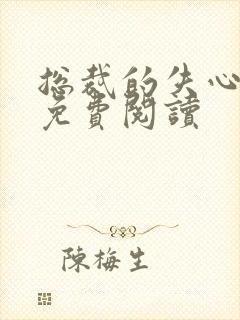 总裁的失心
免費閱讀
陳梅生